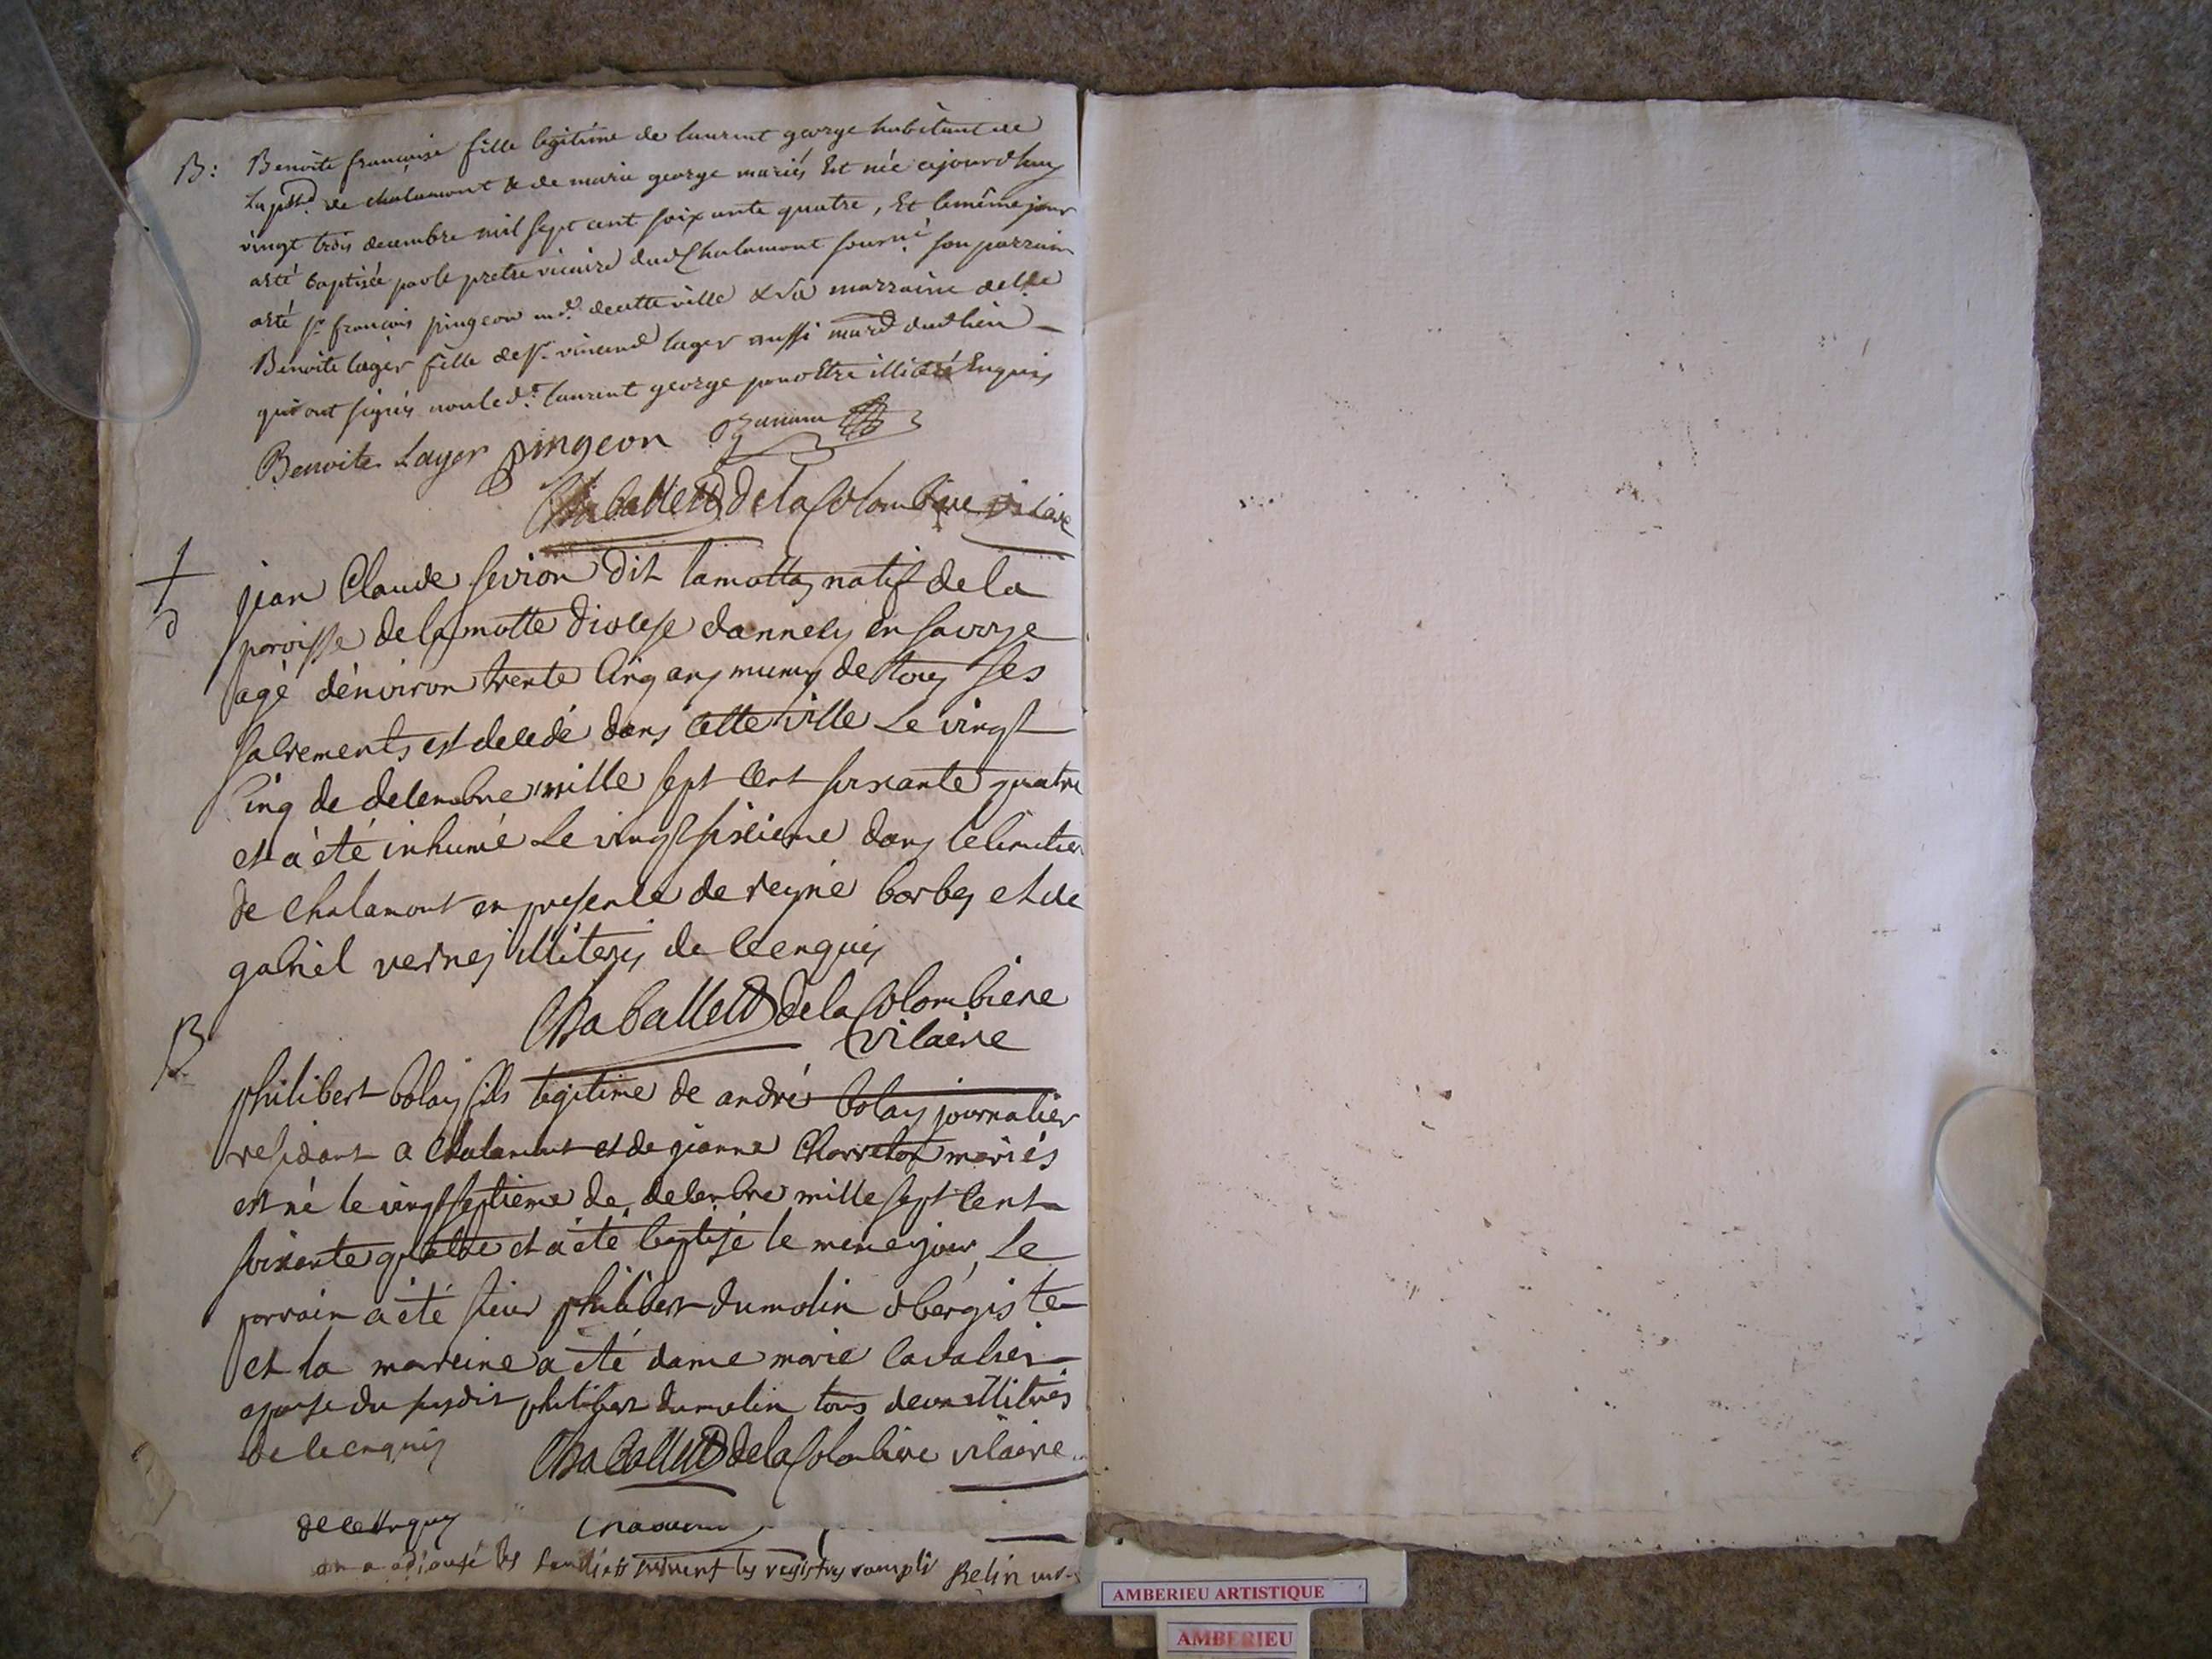 B: Benoite françoise fille legitime de laurent george habitant de
de chalamont & de marie george mariés Est née cejourdhuy
vingt trois decembre mil sept cent soixante quatre, Et lemême jour
aété baptisée par le pretre vicaire dud Chalamont son parrain
aété Sr françois pingeon md. decette ville & sa marraine delle
Benoite lager fille de Sr. vincend lager aussi mard dud lieu
qui ont signés non led.t laurent george pour Etre illiteré Enquis
Benoite Lager pingeon
Chaballerd de la Colombiere vicaire
+ jean Claude sevion dit lamotte natif de la
d paroisse de la motte diocese dannecy en savoye
agé d'environ trente cinq ans muny de tous ses
sacrements est decedé dans cette ville Le vingt
cinq de decembre mille sept cent soixante quatre
et a été inhumé Le vingt sixieme dans le cimitier
de chalamont en presence de reyne barbes et de
gabriel vernes illiterés de ce enquis
Chaballerd de la Colombiere
vicaire
B philibert bolay fils legitime de andré bolay journalier
residant a chalamont et de jeanne Charreton mariés
est né le vingt septieme de decembre mille sept cent
soixante quattre et a été baptisé le meme jour, Le
parrain a été sieur philibert dumolin obergiste
et la marreine a été dame marie cavalier
epouse du susdit philibert dumolin tous deux illiterés
de ce enquis Chaballerd de la Colombiere vicaire
de ce Enquis
on a adjouté les registres rempli Belin
AMBERIEU ARTISTIQUE
AMBERIEU